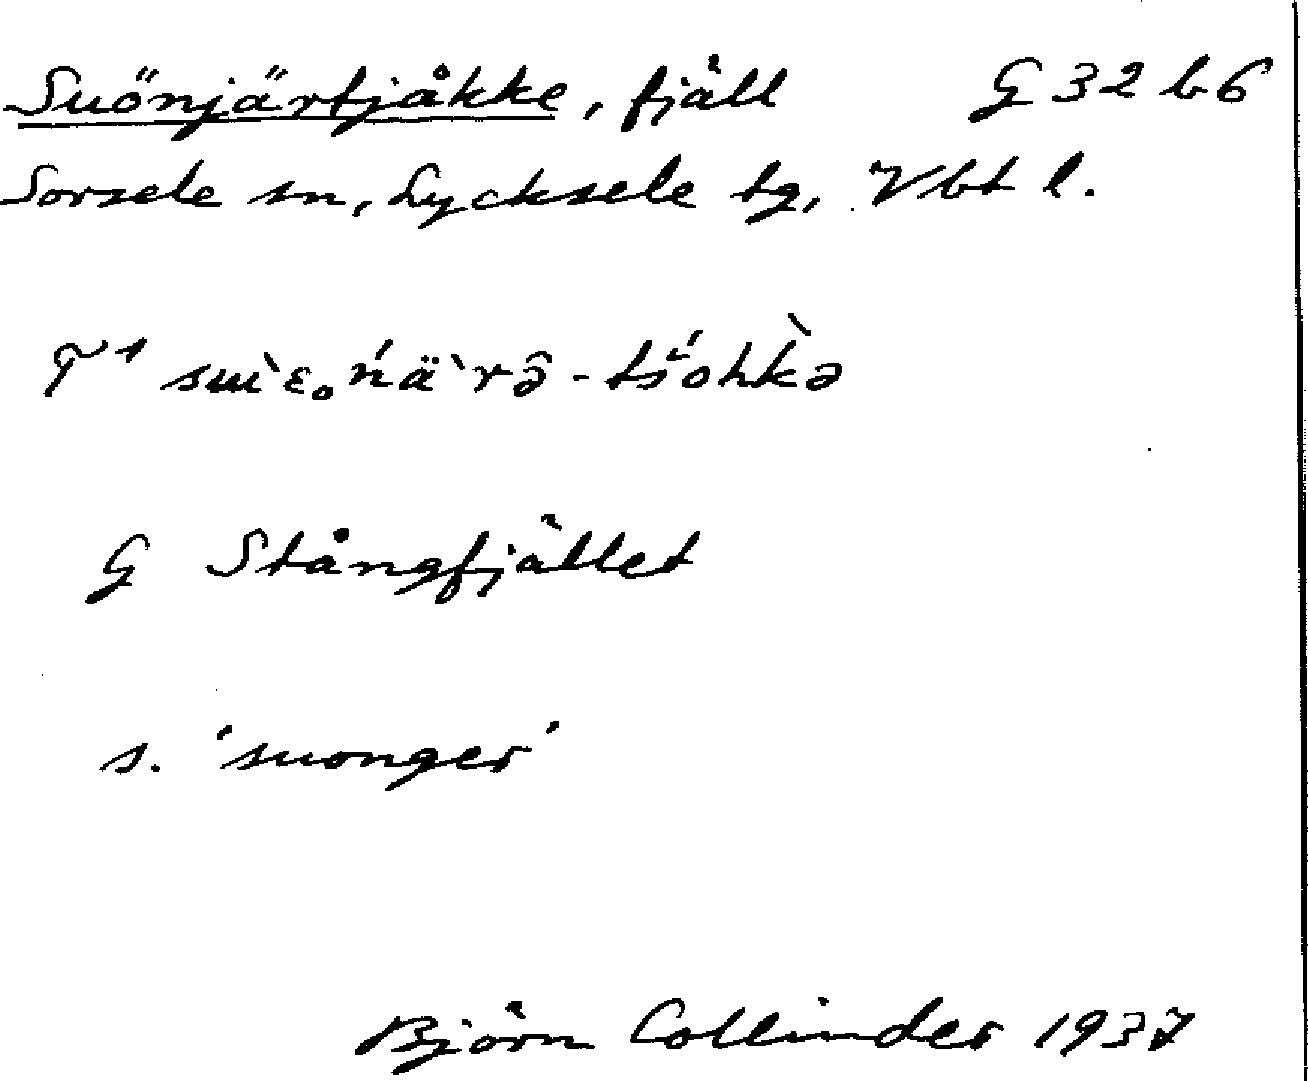 Suönjärtjåkke, fjäll G 32 b 6
Sorsele sn, Lycksele tg, Vbt l.
T¹ sɯ̀ɛ₀ńä̀rə̂ - tś́ohk̀ə
G Stångfjället
s. 'suonger'
Björn Collinder 1937